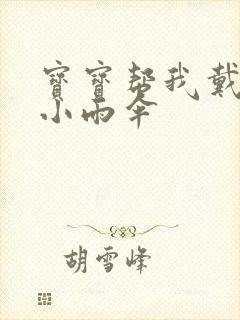 寶寶幫我戴
小雨伞
胡雪峰